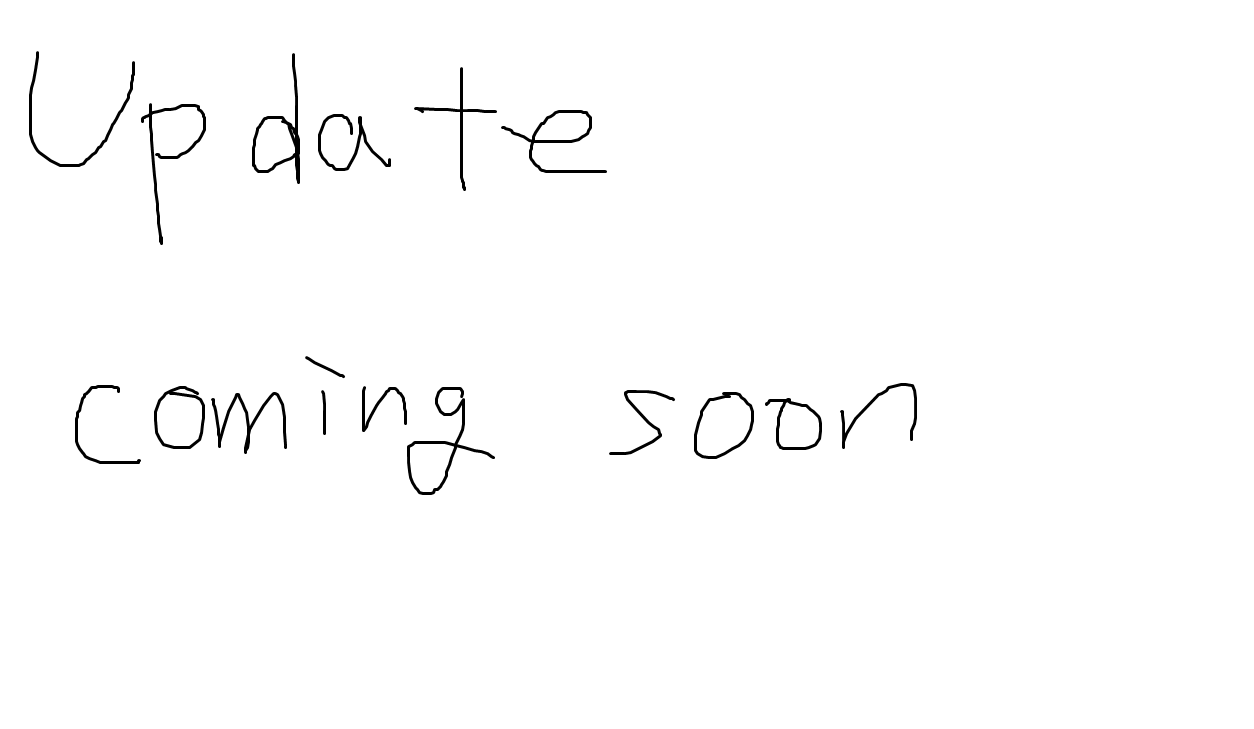 Update
coming soon